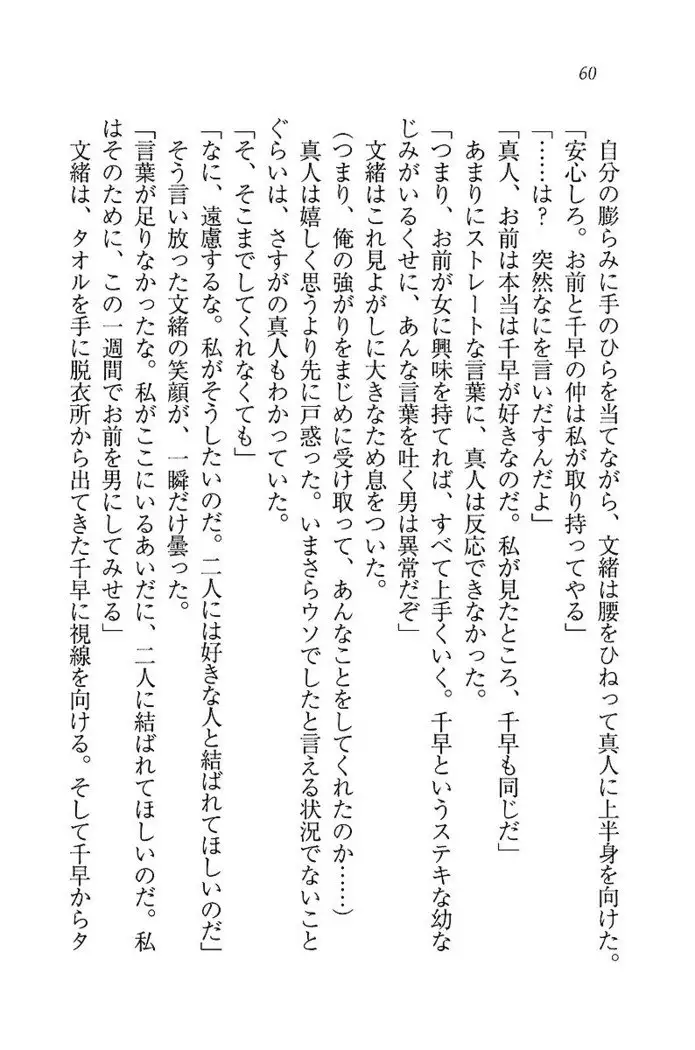 60
自分の膨らみに手のひらを当てながら、文緒は腰をひねって真人に上半身を向けた。
「安心しろ。お前と千早の仲は私が取り持ってやる」
「……は？　突然なにを言いだすんだよ」
「真人、お前は本当は千早が好きなのだ。私が見たところ、千早も同じだ」
あまりにストレートな言葉に、真人は反応できなかった。
「つまり、お前が女に興味を持てれば、すべて上手くいく。千早というステキな幼な
じみがいるくせに、あんな言葉を吐く男は異常だぞ」
文緒はこれ見よがしに大きなため息をついた。
(つまり、俺の強がりをまじめに受け取って、あんなことをしてくれたのか……)
真人は嬉しく思うより先に戸惑った。いまさらウソでしたと言える状況でないこと
ぐらいは、さすがの真人もわかっていた。
「そ、そこまでしてくれなくても」
「なに、遠慮するな。私がそうしたいのだ。二人には好きな人と結ばれてほしいのだ」
そう言い放った文緒の笑顔が、一瞬だけ曇った。
「言葉が足りなかったな。私がここにいるあいだに、二人に結ばれてほしいのだ。私
はそのために、この一週間でお前を男にしてみせる」
文緒は、タオルを手に脱衣所から出てきた千早に視線を向ける。そして千早からタ